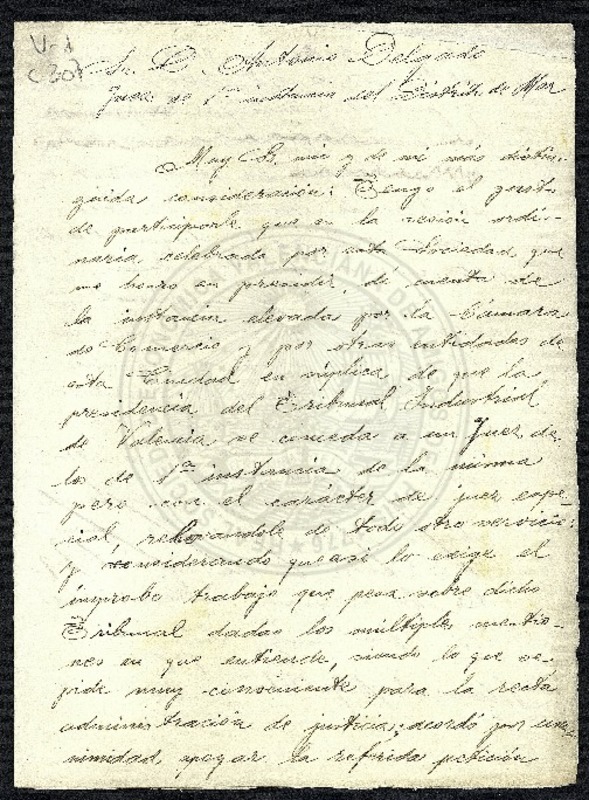 V-1
C 307
Sr. D. Antonio Delgado
Juez de 1ª instancia del Distrito de Mar
Muy Sr. mio y de mi más distin-
guida consideración: Tengo el gusto
de participarle que en la sesión ordi-
naria, celebrada por esta Sociedad, que
me honro en presidir, dí cuenta de
la instancia elevada por la Cámara
de Comercio y por otras entidades de
esta Ciudad en súplica de que la
presidencia del Tribunal Industrial
de Valencia se conceda a un Juez de
los de 1ª instancia de la misma
pero con el carácter de juez espe-
cial, relevandole de todo otro servicio:
y considerando que así lo exige el
ímprobo trabajo que pesa sobre dicho
Tribunal dadas las múltiples cuestio-
nes en que entiende, siendo lo que se
pide muy conveniente para la recta
administración de justicia; acordó por una-
nimidad, apoyar la referida petición